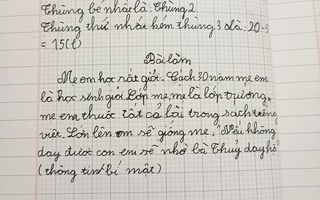 Thùng bé nhất là: Thùng 2
Thùng thứ nhất kém thùng 3 là: 20-5
= 15(l)
Bài làm
Mẹ em học rất giỏi. Cách 30 năm mẹ em
là học sinh giỏi Lớp mẹ, mẹ là lớp trưởng,
mẹ em thuộc tất cả bài trong sách tiếng
việt. Lớn lên em sẽ giống mẹ. "Nếu không
dạy được con em sẽ nhờ bà Thuỷ dạy hộ"
(thông tin bí mật)